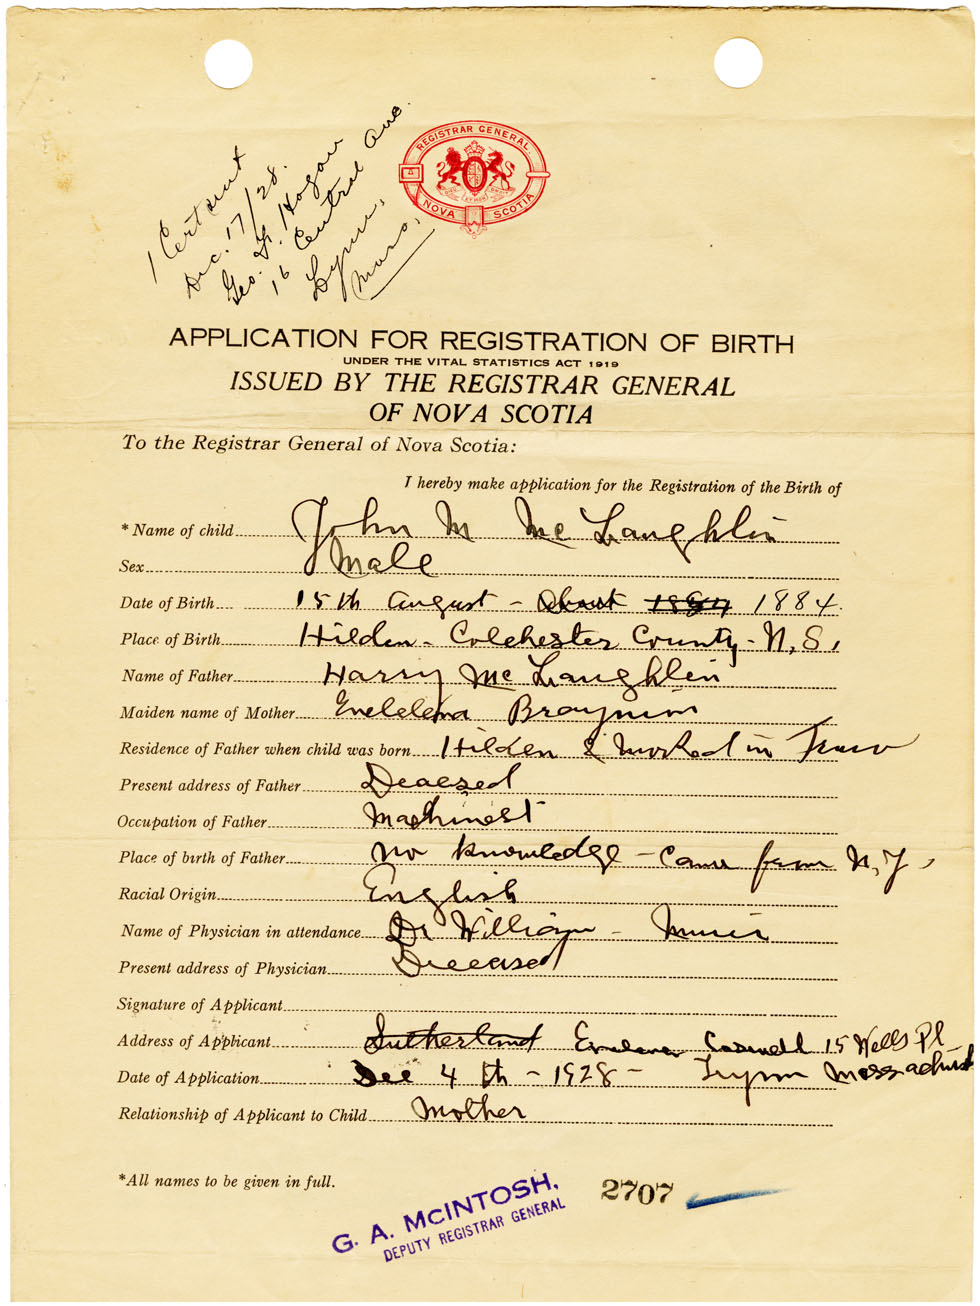 1 Cert sent
Dec. 17/28.
Geo. H. Hogan
16 Central Ave.
Lynn,
Mass.
REGISTRAR GENERAL
NOVA SCOTIA
APPLICATION FOR REGISTRATION OF BIRTH
UNDER THE VITAL STATISTICS ACT 1919
ISSUED BY THE REGISTRAR GENERAL
OF NOVA SCOTIA
To the Registrar General of Nova Scotia:
I hereby make application for the Registration of the Birth of
*Name of child John M McLaughlin
Sex Male
Date of Birth 15th August - 1884.
Place of Birth Hilden - Colchester County - N.S.
Name of Father Harry McLaughlin
Maiden name of Mother
Residence of Father when child was born Hilden & worked in Truro
Present address of Father Deacesed
Occupation of Father Machinest
Place of birth of Father No knowledge - came from N.J.
Racial Origin English
Name of Physician in attendance Dr William - Muir
Present address of Physician Deceased
Signature of Applicant
Address of Applicant Sutherland 15 Wells Pl
Date of Application Dec 4th - 1928 - Lynn
Relationship of Applicant to Child Mother
*All names to be given in full.
G. A. McINTOSH,
DEPUTY REGISTRAR GENERAL
2707